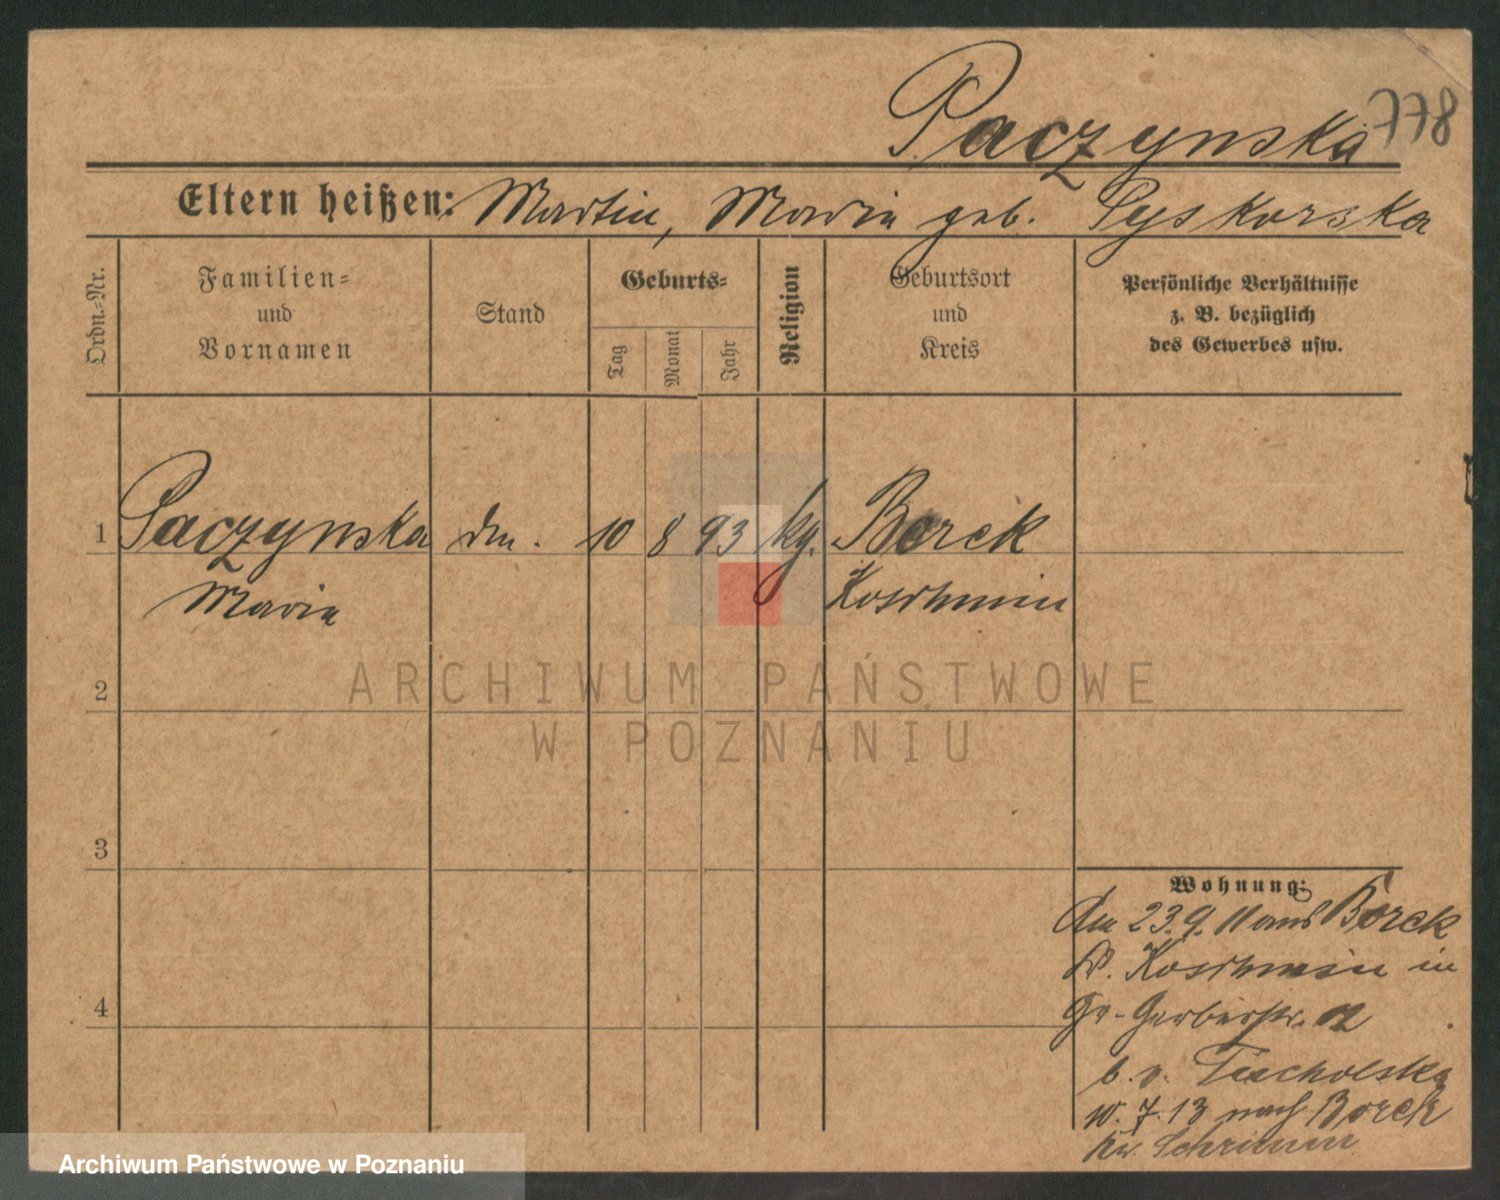 Paczynska 778
Eltern heißen: Martin, Maria geb. Syskorska
Ordn.-Nr.
Familien-
und
Vornamen
Stand
Geburts-
Tag
Monat
Jahr
Religion
Geburtsort
und
Kreis
Persönliche Verhältnisse
z. B. bezüglich
des Gewerbes usw.
1 Paczynska 10 8 93 kg. Borek
Maria Koschmin
2
ARCHIWUM PAŃSTWOWE
W POZNANIU
3
Wohnung:
Am 23.9.11 aus Borek
Kr. Koschmin in
Gr. Gerberstr.
b. v.
10.7.13 nach Borek
Kr. Schrimm
4
Archiwum Państwowe w Poznaniu